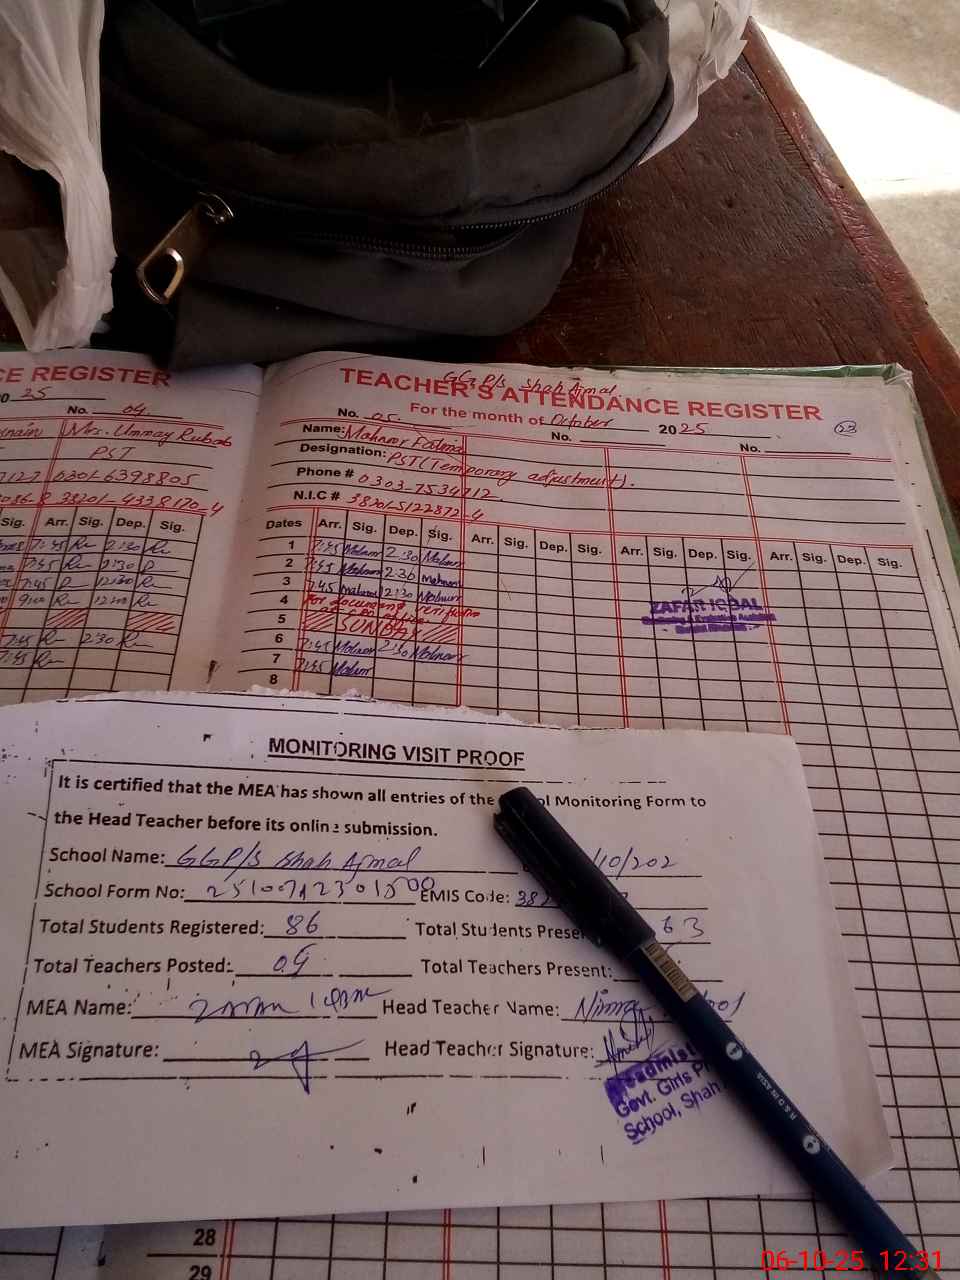 CE REGISTER
25
No. 04
Mrs. Ummay Rubab
PST
7127 0301-6398805
38201-4338170-4
Sig. Arr. Sig. Dep. Sig.
7:45 2:30
7:45 2:30
7:45 12:30
9:00 12:00
7:45 2:30
7:45
GGP/S Shah Ajmal
TEACHER'S ATTENDANCE REGISTER
For the month of October 2025
No. 05 No. No.
Name: Mahnor Fatima
Designation: PST (Temporary adjustment).
Phone # 0303-7534712
N.I.C # 38201-5122872-4
Dates Arr. Sig. Dep. Sig. Arr. Sig. Dep. Sig. Arr. Sig. Dep. Sig. Arr. Sig. Dep. Sig.
1 7:45 Mahnor 2:30 Mahnor
2 7:45 Mahnor 2:30 Mahnor
3 7:45 Mahnor 12:30 Mahnor
4 For document verification
5 SUNDAY
6 7:45 Mahnor 2:30 Mahnor
7 7:45 Mahnor
8
ZAFAR IQBAL
MONITORING VISIT PROOF
It is certified that the MEA has shown all entries of the ol Monitoring Form to
the Head Teacher before its online submission.
School Name: GGP/S Shah Ajmal /10/202
School Form No: EMIS Code: 382
Total Students Registered: 86 Total Students Prese 63
Total Teachers Posted: 04 Total Teachers Present:
MEA Name: Head Teacher Name:
MEA Signature: Head Teacher Signature:
Headmist
Govt. Girls Pr
School, Shah
28
29
R & D IN ASIA
06-10-25 12:31